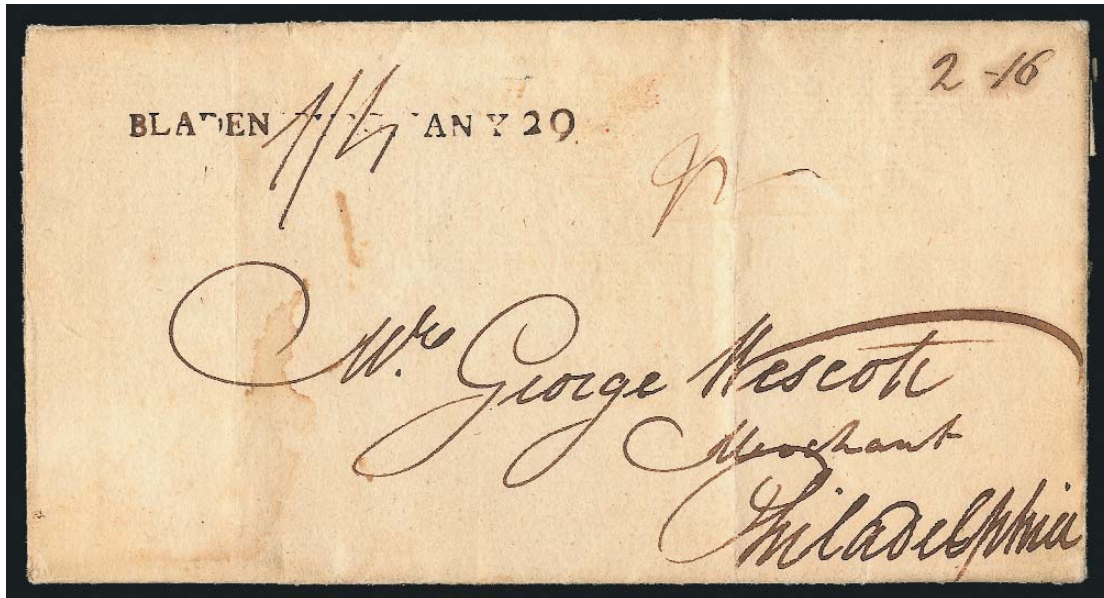 2-16
BLADEN AN Y 29
1/4
Mr. George Wescott
Merchant
Philadelphia